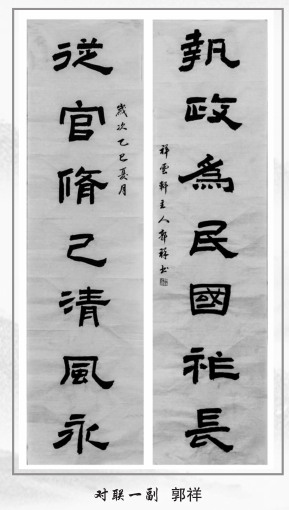 執政為民國祚長
祥雲軒主人郭祥书
歲次乙巳夏月
從官脩己清風永
对联一副 郭祥